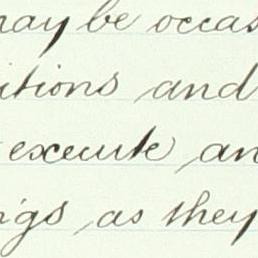 may be occas
itions and
execute an
ngs, as they